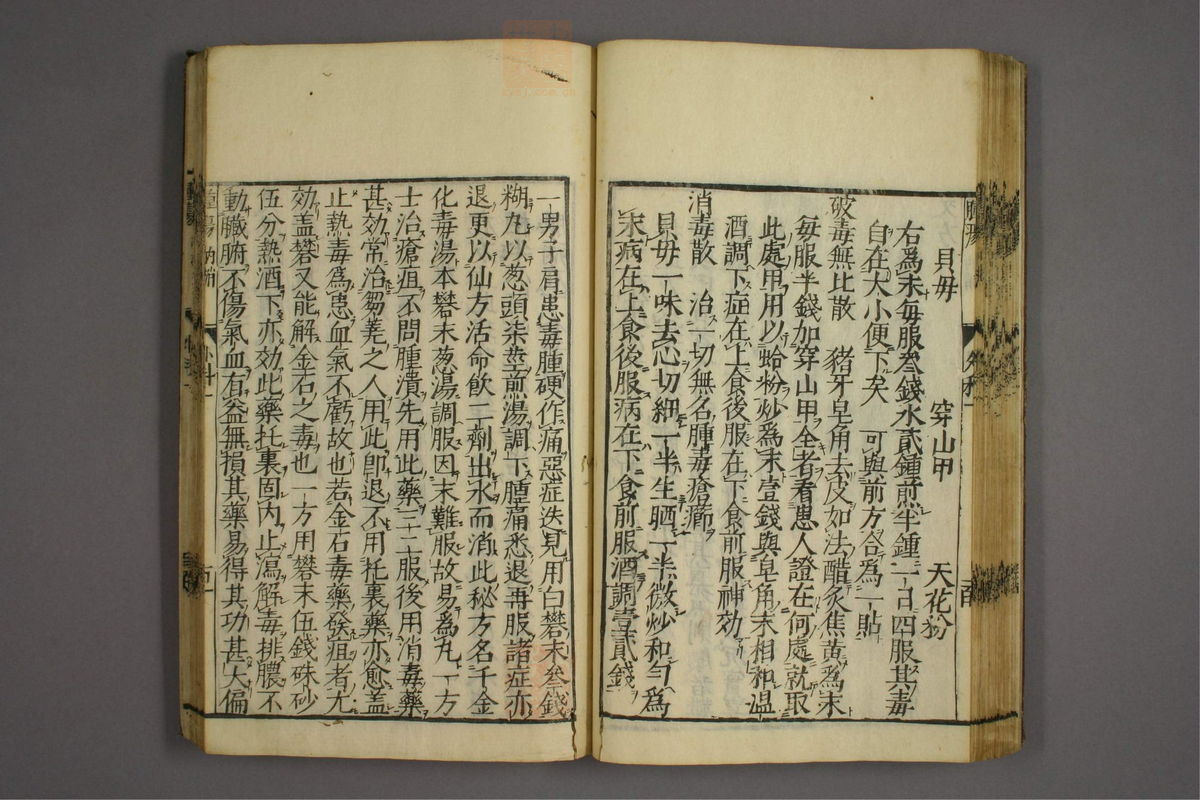 貝毋　穿山甲　天花粉
右爲末每服叄錢水貳鍾煎半鍾一日四服其毒
自在大小便下矣　可與前方合爲一貼
破毒無比散　豬牙皂角去皮如法醋炙焦黃爲末
每服半錢加穿山甲全者看患人證在何處就取
此處甲用以蛤粉炒爲末壹錢與皂角末相和温
酒調下症在上食後服在下食前服神効
消毒散　治一切無名腫毒瘡癤
貝毋一味去心切細一半生晒一半微炒和勻爲
末病在上食後服病在下食前服酒調壹貳錢
一男子肩患毒腫硬作痛惡症迭見用白礬末叄錢
糊丸以葱頭柒莖煎湯調下腫痛悉退再服諸症亦
退更以仙方活命飲二劑出水而消此秘方名千金
化毒湯本礬末葱湯調服因末難服故易爲丸一方
士治瘡疽不問腫潰先用此藥二三服後用消毒藥
甚効常治芻蕘之人用此卽退不用托裏藥亦愈盖
止熱毒爲患血氣不虧故也若金石毒藥發疽者尤
効盖礬又能解金石之毒也一方用礬末伍錢硃砂
伍分熱酒下亦効此藥托裏固內止瀉解毒排膿不
動臟腑不傷氣血有益無損其藥易得其功甚大偏